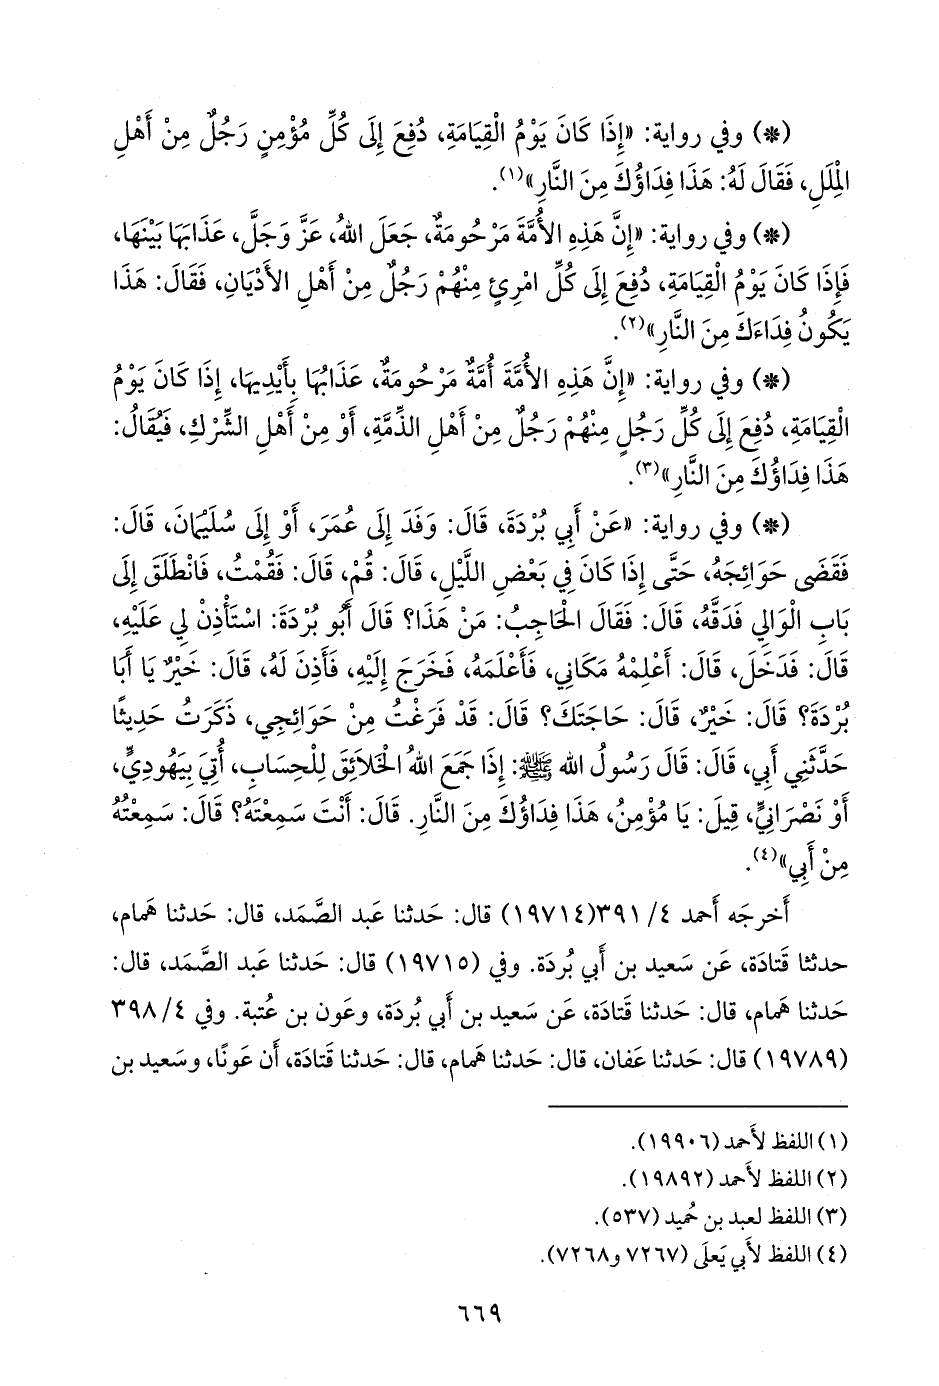 (*) وفي رواية: «إِذَا كَانَ يَوْمُ الْقِيَامَةِ، دُفِعَ إِلَى كُلِّ مُؤْمِنٍ رَجُلٌ مِنْ أَهْلِ
الْمِلَلِ، فَقَالَ لَهُ: هَذَا فِدَاؤُكَ مِنَ النَّارِ»(١).
(*) وفي رواية: «إِنَّ هَذِهِ الأُمَّةَ مَرْحُومَةٌ، جَعَلَ اللهُ، عَزَّ وَجَلَّ، عَذَابَهَا بَيْنَهَا،
فَإِذَا كَانَ يَوْمُ الْقِيَامَةِ، دُفِعَ إِلَى كُلِّ امْرِئٍ مِنْهُمْ رَجُلٌ مِنْ أَهْلِ الأَدْيَانِ، فَقَالَ: هَذَا
يَكُونُ فِدَاءَكَ مِنَ النَّارِ»(٢).
(*) وفي رواية: «إِنَّ هَذِهِ الأُمَّةَ أُمَّةٌ مَرْحُومَةٌ، عَذَابُهَا بِأَيْدِيهَا، إِذَا كَانَ يَوْمُ
الْقِيَامَةِ، دُفِعَ إِلَى كُلِّ رَجُلٍ مِنْهُمْ رَجُلٌ مِنْ أَهْلِ الذِّمَّةِ، أَوْ مِنْ أَهْلِ الشِّرْكِ، فَيُقَالُ:
هَذَا فِدَاؤُكَ مِنَ النَّارِ»(٣).
(*) وفي رواية: «عَنْ أَبِي بُرْدَةَ، قَالَ: وَفَدَ إِلَى عُمَرَ، أَوْ إِلَى سُلَيْمَانَ، قَالَ:
فَقَضَى حَوَائِجَهُ، حَتَّى إِذَا كَانَ فِي بَعْضِ اللَّيْلِ، قَالَ: قُمْ، قَالَ: فَقُمْتُ، فَانْطَلَقَ إِلَى
بَابِ الْوَالِي فَدَقَّهُ، قَالَ: فَقَالَ الْحَاجِبُ: مَنْ هَذَا؟ قَالَ أَبُو بُرْدَةَ: اسْتَأْذِنْ لِي عَلَيْهِ،
قَالَ: فَدَخَلَ، قَالَ: أَعْلِمْهُ مَكَانِي، فَأَعْلَمَهُ، فَخَرَجَ إِلَيْهِ، فَأَذِنَ لَهُ، قَالَ: خَيْرٌ يَا أَبَا
بُرْدَةَ؟ قَالَ: خَيْرٌ، قَالَ: حَاجَتَكَ؟ قَالَ: قَدْ فَرَغْتُ مِنْ حَوَائِجِي، ذَكَرَتُ حَدِيثًا
حَدَّثَنِي أَبِي، قَالَ: قَالَ رَسُولُ الله ﷺ: إِذَا جَمَعَ اللهُ الْخَلَائِقَ لِلْحِسَابِ، أُتِيَ بِيَهُودِيٍّ،
أَوْ نَصْرَانِيٍّ، قِيلَ: يَا مُؤْمِنُ، هَذَا فِدَاؤُكَ مِنَ النَّارِ. قَالَ: أَنْتَ سَمِعْتَهُ؟ قَالَ: سَمِعْتُهُ
مِنْ أَبِي»(٤).
أَخرجَه أَحمد ٤/ ٣٩١(١٩٧١٤) قال: حَدثنا عَبد الصَّمَد، قال: حَدثنا هَمام،
حدثثا قَتادَة، عَن سَعيد بن أَبي بُردَة. وفي (١٩٧١٥) قال: حَدثنا عَبد الصَّمَد، قال:
حَدثنا هَمام، قال: حَدثنا قَتادَة، عَن سَعيد بن أَبي بُردَة، وعَون بن عُتبة. وفي ٤/ ٣٩٨
(١٩٧٨٩) قال: حَدثنا عَفان، قال: حَدثنا هَمام، قال: حَدثنا قَتادَة، أَن عَونًا، وسَعيد بن
(١) اللفظ لأَحمد (١٩٩٠٦).
(٢) اللفظ لأَحمد (١٩٨٩٢).
(٣) اللفظ لعبد بن حُميد (٥٣٧).
(٤) اللفظ لأَبي يَعلَى (٧٢٦٧ و٧٢٦٨).
٦٦٩